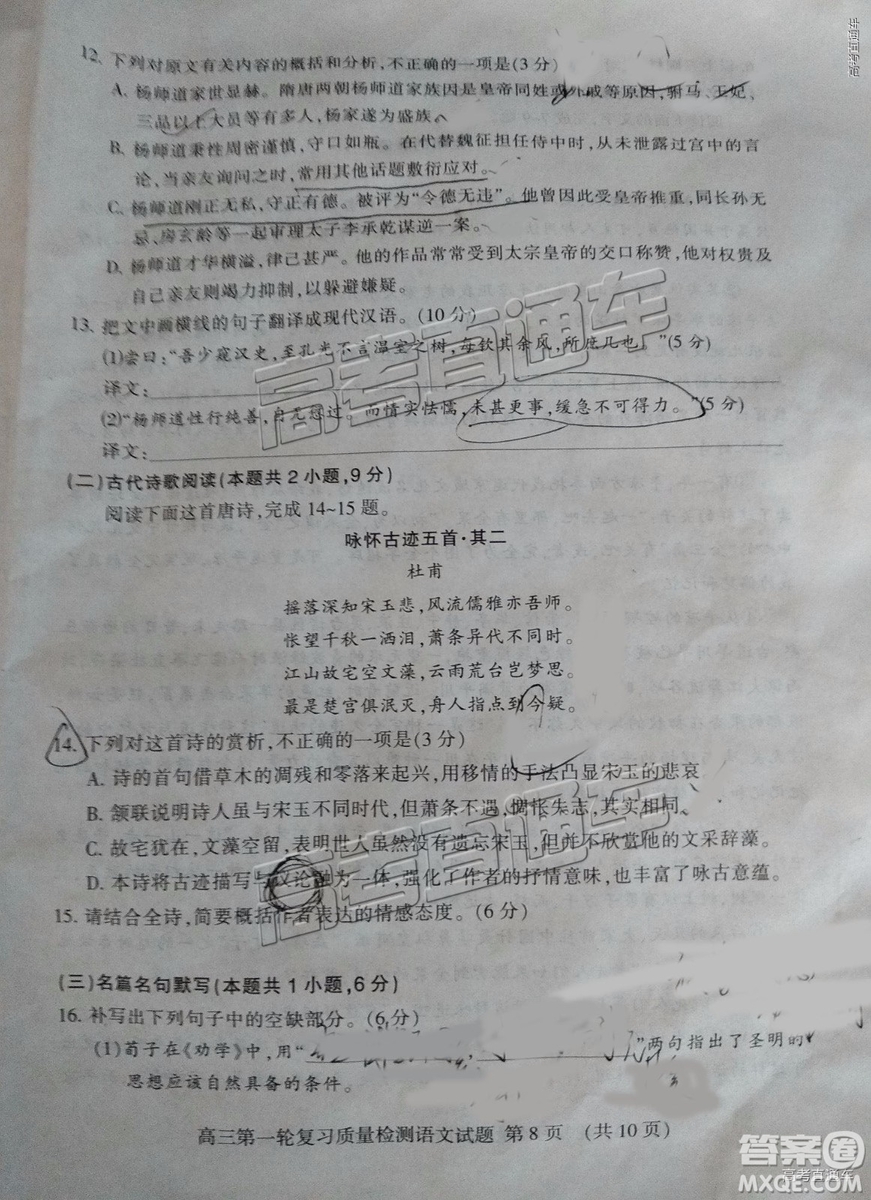 12. 下列对原文有关内容的概括和分析,不正确的一项是(3分)
A. 杨师道家世显赫。隋唐两朝杨师道家族因是皇帝同姓或外戚等原因,驸马、王妃、
三品以上大员等有多人,杨家遂为盛族。
B. 杨师道秉性周密谨慎,守口如瓶。在代替魏征担任侍中时,从未泄露过宫中的言
论,当亲友询问之时,常用其他话题敷衍应对。
C. 杨师道刚正无私,守正有德。被评为“令德无违”。他曾因此受皇帝推重,同长孙无
忌、房玄龄等一起审理太子李承乾谋逆一案。
D. 杨师道才华横溢,律己甚严。他的作品常常受到太宗皇帝的交口称赞,他对权贵及
自己亲友则竭力抑制,以躲避嫌疑。
13. 把文中画横线的句子翻译成现代汉语。(10分)
(1)尝曰:“吾少窥汉史,至孔光不言温室之树,每钦其余风,所庶几也。”(5分)
译文:
(2)“杨师道性行纯善,自无愆过。而情实怯懦,未甚更事,缓急不可得力。”(5分)
译文:
(二)古代诗歌阅读(本题共2小题,9分)
阅读下面这首唐诗,完成14~15题。
咏怀古迹五首·其二
杜甫
摇落深知宋玉悲,风流儒雅亦吾师。
怅望千秋一洒泪,萧条异代不同时。
江山故宅空文藻,云雨荒台岂梦思。
最是楚宫俱泯灭,舟人指点到今疑。
14. 下列对这首诗的赏析,不正确的一项是(3分)
A. 诗的首句借草木的凋残和零落来起兴,用移情的手法凸显宋玉的悲哀
B. 颔联说明诗人虽与宋玉不同时代,但萧条不遇,惆怅失志,其实相同。
C. 故宅犹在,文藻空留,表明世人虽然没有遗忘宋玉,但并不欣赏他的文采辞藻。
D. 本诗将古迹描写与议论融为一体,强化了作者的抒情意味,也丰富了咏古意蕴。
15. 请结合全诗,简要概括作者表达的情感态度。(6分)
(三)名篇名句默写(本题共1小题,6分)
16. 补写出下列句子中的空缺部分。(6分)
(1)荀子在《劝学》中,用“
”两句指出了圣明的
思想应该自然具备的条件。
高三第一轮复习质量检测语文试题 第8页 (共10页)
高考直通车
高考直通车
高考直通车
答案圈
高考直通车
MXQE.COM